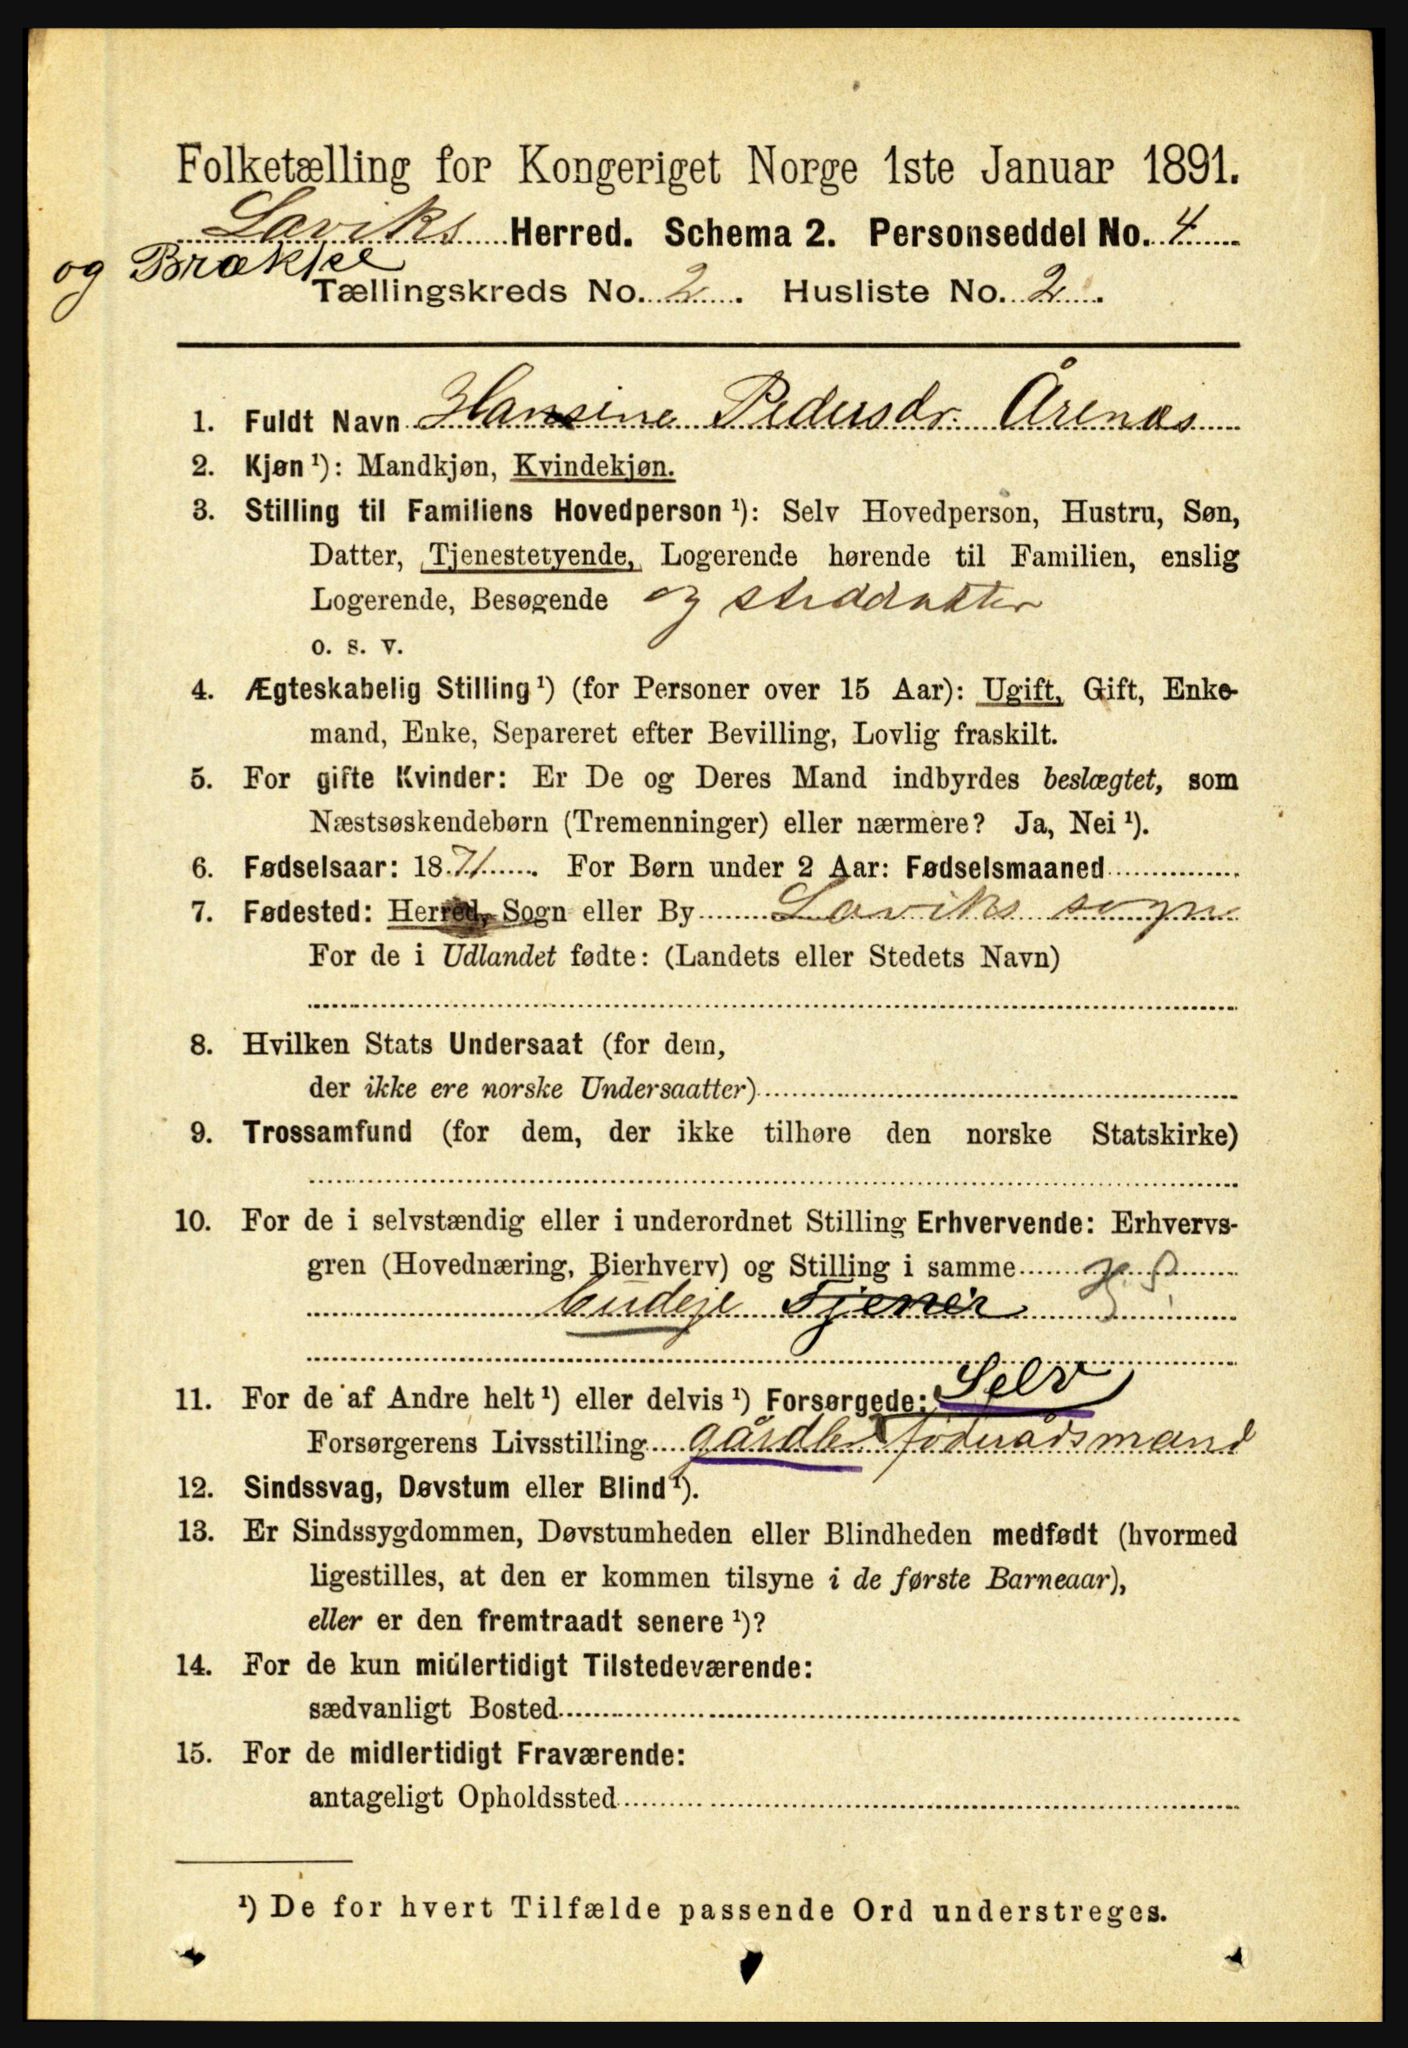 Folketælling for Kongeriget Norge 1ste Januar 1891.
Laviks Herred. Schema 2. Personseddel No. 4
og Brække
Tællingskreds No. 2. Husliste No. 2.
1. Fuldt Navn Hansine Pedersdr. Årenæs
2. Kjøn ¹): Mandkjøn, Kvindekjøn.
3. Stilling til Familiens Hovedperson ¹): Selv Hovedperson, Hustru, Søn,
Datter, Tjenestetyende, Logerende hørende til Familien, enslig
Logerende, Besøgende og steddatter
o. s. v.
4. Ægteskabelig Stilling ¹) (for Personer over 15 Aar): Ugift, Gift, Enke-
mand, Enke, Separeret efter Bevilling, Lovlig fraskilt.
5. For gifte Kvinder: Er De og Deres Mand indbyrdes beslægtet, som
Næstsøskendebørn (Tremenninger) eller nærmere? Ja, Nei ¹).
6. Fødselsaar: 1871. For Børn under 2 Aar: Fødselsmaaned
7. Fødested: Herred, Sogn eller By Laviks sogn
For de i Udlandet fødte: (Landets eller Stedets Navn)
8. Hvilken Stats Undersaat (for dem,
der ikke ere norske Undersaatter)
9. Trossamfund (for dem, der ikke tilhøre den norske Statskirke)
10. For de i selvstændig eller i underordnet Stilling Erhvervende: Erhvervs-
gren (Hovednæring, Bierhverv) og Stilling i samme
budeje Tjener
11. For de af Andre helt ¹) eller delvis ¹) Forsørgede: Selv
Forsørgerens Livsstilling gårdbr føderådsmand
12. Sindssvag, Døvstum eller Blind ¹).
13. Er Sindssygdommen, Døvstumheden eller Blindheden medfødt (hvormed
ligestilles, at den er kommen tilsyne i de første Barneaar),
eller er den fremtraadt senere ¹)?
14. For de kun midlertidigt Tilstedeværende:
sædvanligt Bosted
15. For de midlertidigt Fraværende:
antageligt Opholdssted
¹) De for hvert Tilfælde passende Ord understreges.